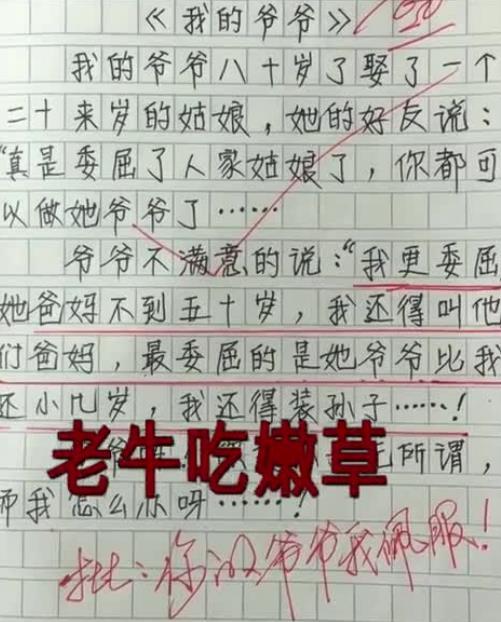 《我的爷爷》
我的爷爷八十岁了娶了一个
二十来岁的姑娘，她的好友说：
"真是委屈了人家姑娘了，你都可
以做她爷爷了……
爷爷不满意的说："我更委屈
她爸妈不到五十岁，我还得叫他
们爸妈，最委屈的是她爷爷比我
还小几岁，我还得装孙子……！
老牛吃嫩草
所谓，
师我怎么办呀……！
批：你的爷爷我佩服！